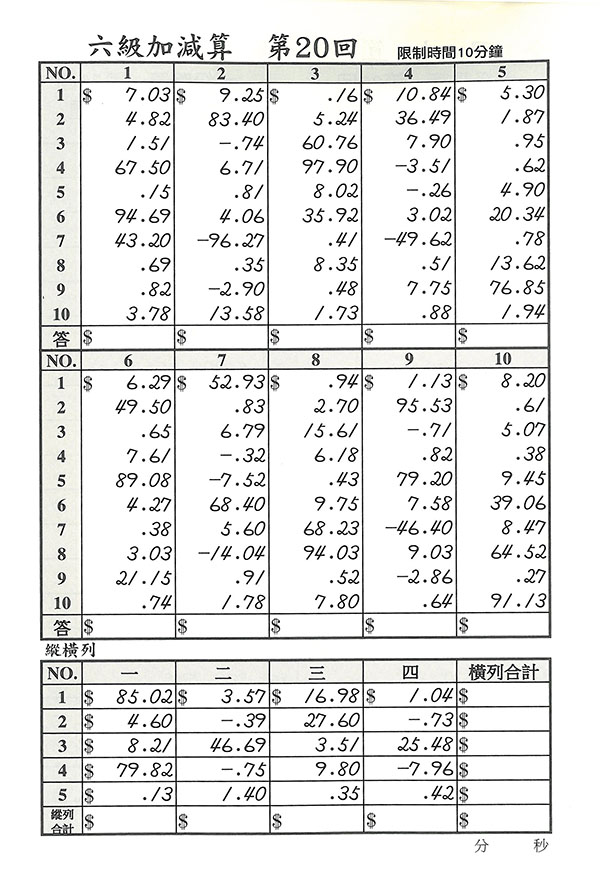 六級加減算 第20回 限制時間10分鐘
NO. 1 2 3 4 5
1 $ 7.03 $ 9.25 $ .16 $ 10.84 $ 5.30
2 4.82 83.40 5.24 36.49 1.87
3 1.51 -.74 60.76 7.90 .95
4 67.50 6.71 97.90 -3.51 .62
5 .15 .81 8.02 -.26 4.90
6 94.69 4.06 35.92 3.02 20.34
7 43.20 -96.27 .41 -49.62 .78
8 .69 .35 8.35 .51 13.62
9 .82 -2.90 .48 7.75 76.85
10 3.78 13.58 1.73 .88 1.94
答 $ $ $ $ $
NO. 6 7 8 9 10
1 $ 6.29 $ 52.93 $ .94 $ 1.13 $ 8.20
2 49.50 .83 2.70 95.53 .61
3 .65 6.79 15.61 -.71 5.07
4 7.61 -.32 6.18 .82 .38
5 89.08 -7.52 .43 79.20 9.45
6 4.27 68.40 9.75 7.58 39.06
7 .38 5.60 68.23 -46.40 8.47
8 3.03 -14.04 94.03 9.03 64.52
9 21.15 .91 .52 -2.86 .27
10 .74 1.78 7.80 .64 91.13
答 $ $ $ $ $
縱橫列
NO. 一 二 三 四 橫列合計
1 $ 85.02 $ 3.57 $ 16.98 $ 1.04 $
2 $ 4.60 -.39 27.60 -.73 $
3 $ 8.21 46.69 3.51 25.48 $
4 $ 79.82 -.75 9.80 -7.96 $
5 $ .13 1.40 .35 .42 $
縱列合計 $ $ $ $ $
分 秒